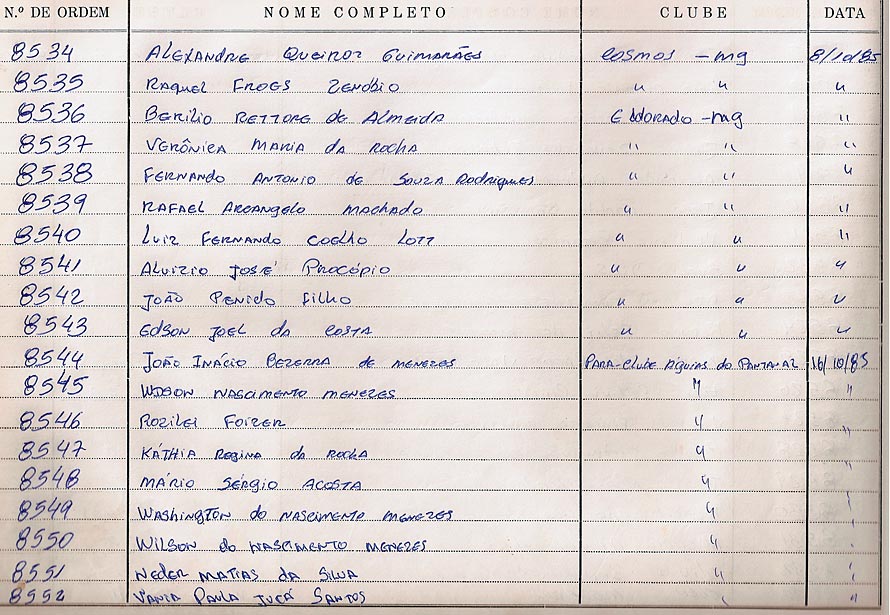 N.º DE ORDEM NOME COMPLETO CLUBE DATA
8534 ALEXANDRE QUEIROZ GUIMARÃES COSMOS - MG 8/10/85
8535 RAQUEL FROES ZENÓBIO " " "
8536 BERILIO RETTORE de Almeida Eldorado - MG "
8537 VERÔNICA MARIA da ROCHA " " "
8538 FERNANDO ANTONIO de SOUZA Rodrigues " " "
8539 RAFAEL ARCANGELO MACHADO " " "
8540 LUIZ FERNANDO COELHO LOTT " " "
8541 ALUIZIO JOSÉ PROCÓPIO " " "
8542 JOÃO PENIDO Filho " " "
8543 EDSON JOEL da COSTA " " "
8544 JOÃO INÁCIO BEZERRA de MENEZES PARA-Clube Águias do PANTANAL 16/10/85
8545 WDSON NASCIMENTO MENEZES " "
8546 ROZILEI FOIZER " "
8547 KÁTHIA Regina da ROCHA " "
8548 MÁRIO SÉRGIO ACOSTA " "
8549 WASHINGTON do NASCIMENTO MENEZES " "
8550 WILSON do NASCIMENTO MENEZES " "
8551 NEDER MATIAS da SILVA " "
8552 VANIA PAULA JUCÁ SANTOS " "